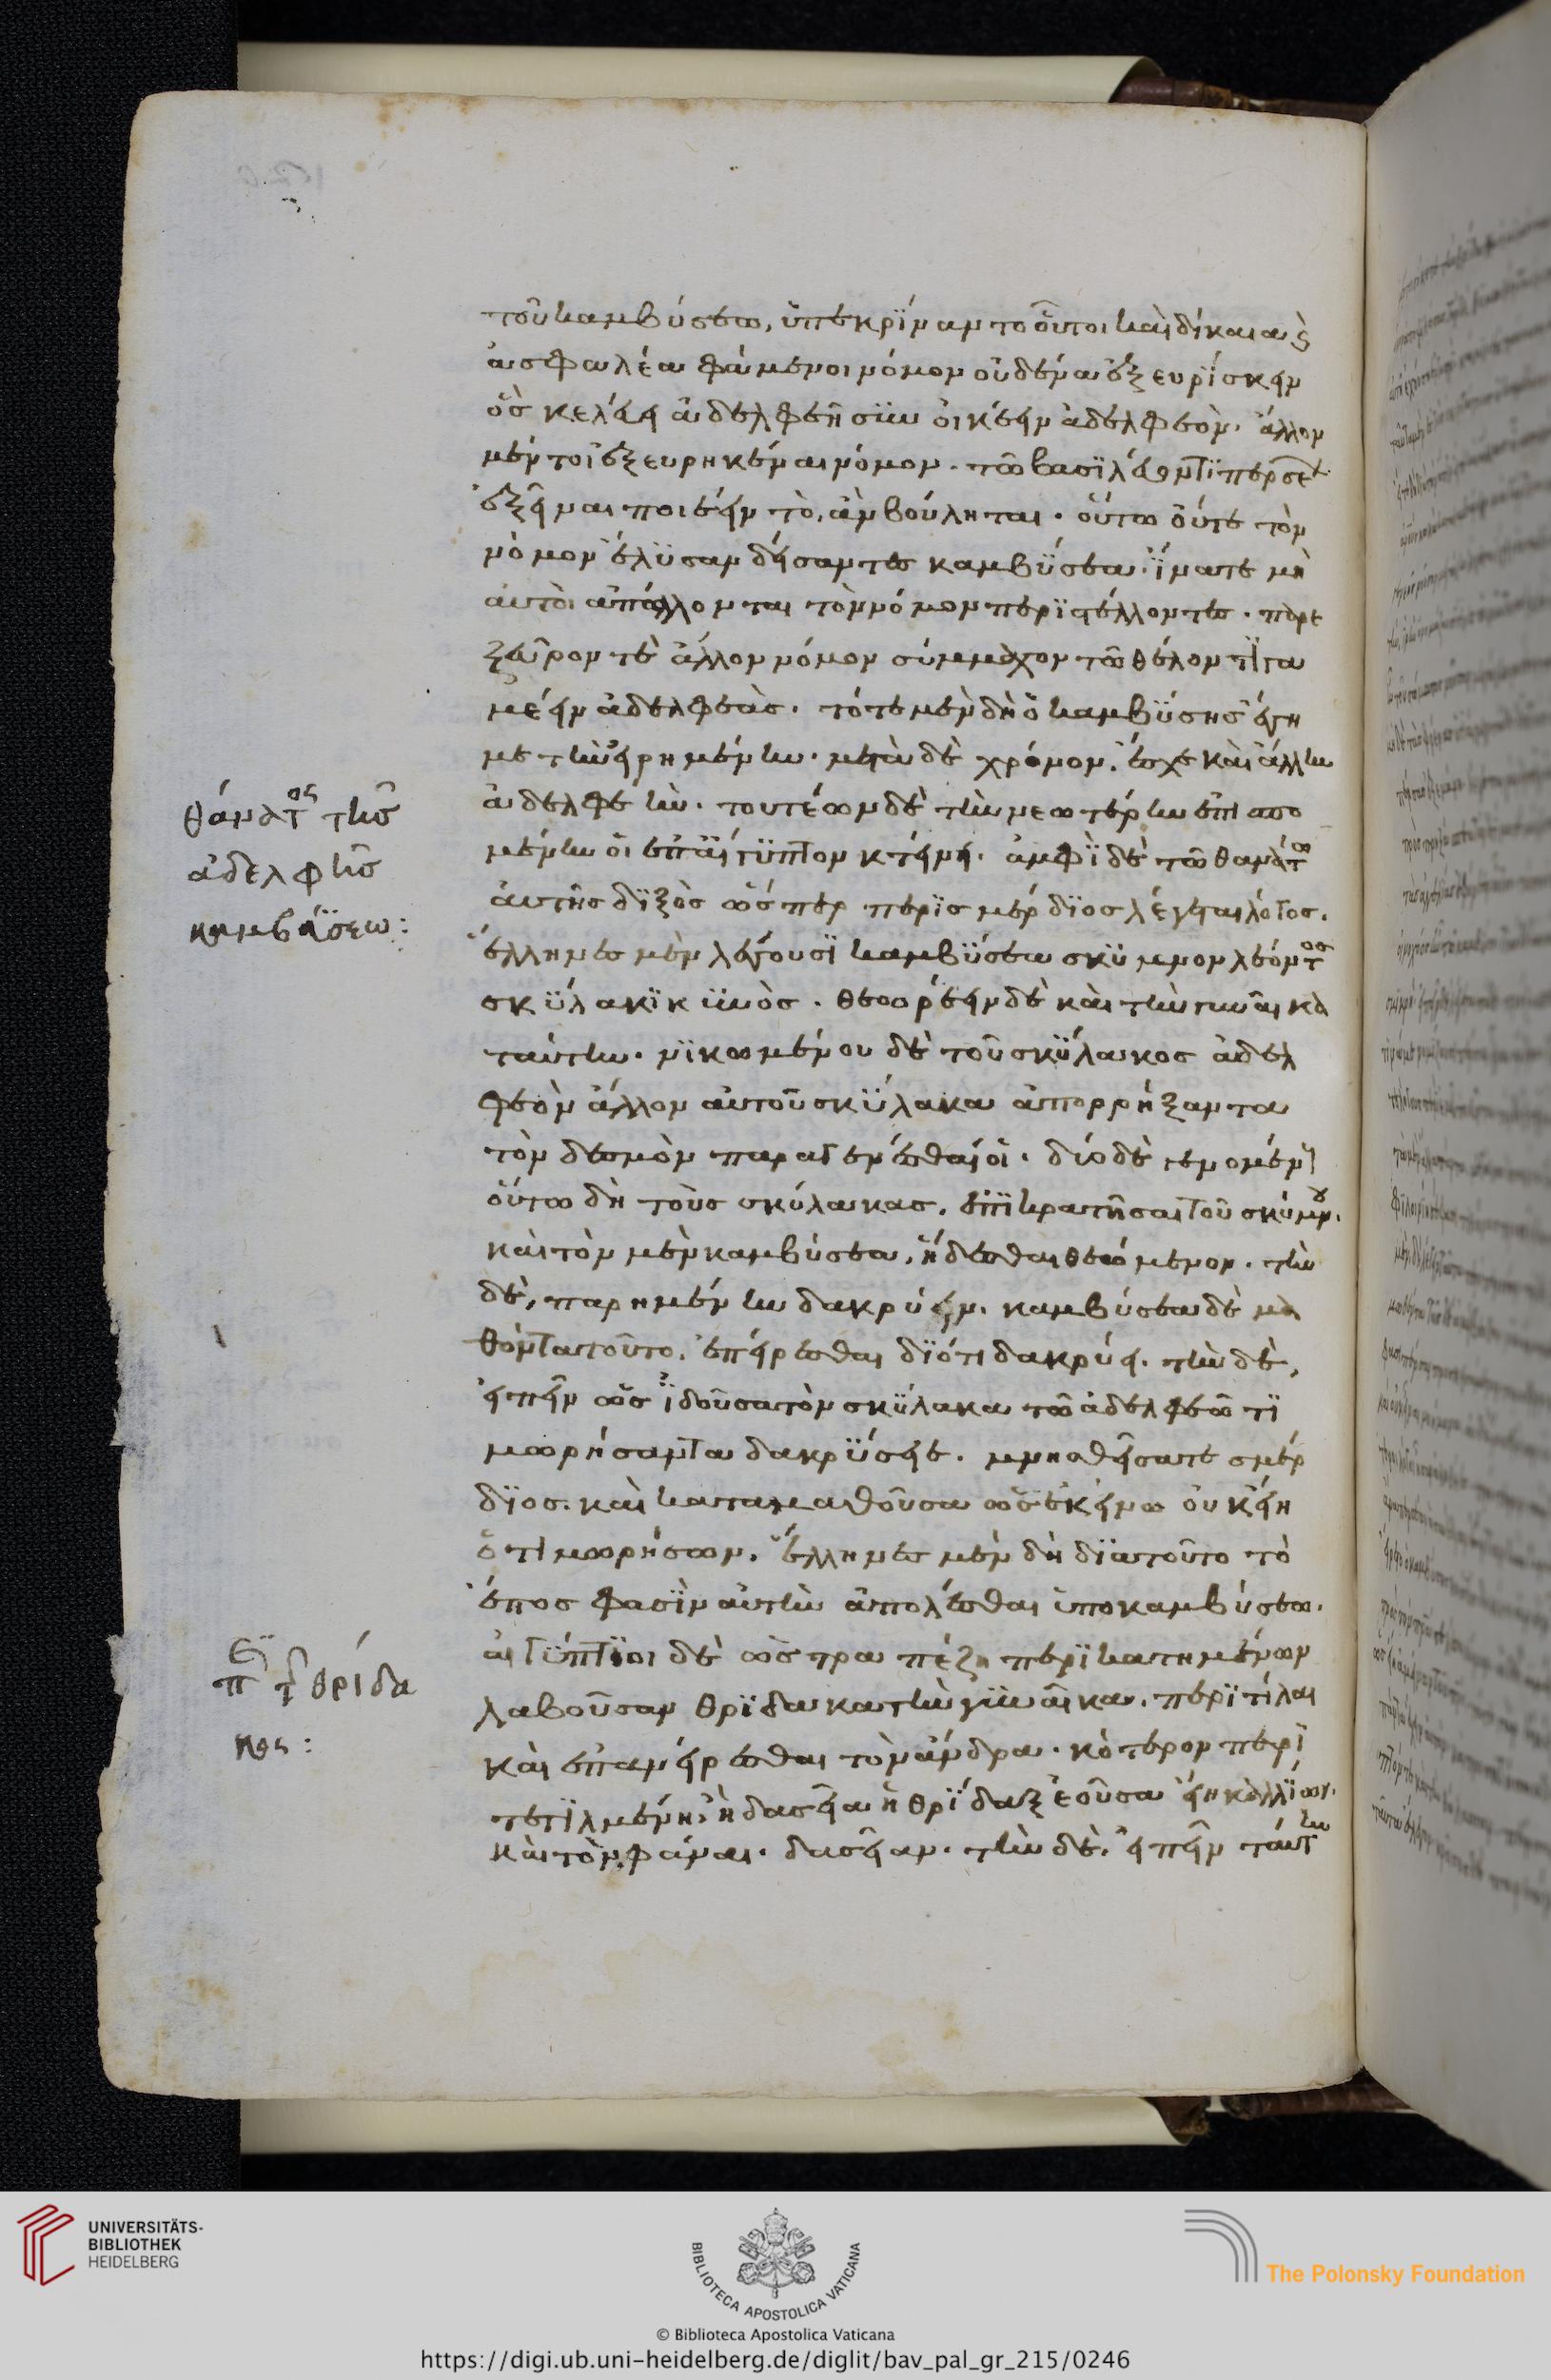 τοῦ καμβύσεω, ὑπεκρίναντο οὗτοι καὶ δίκαια καὶ
ἀσφαλέα φάμενοι νόμον οὐδένα ἐξευρίσκειν
ὃς κελεύει ἀδελφεῇ συνοικέειν ἀδελφεόν. ἄλλον
μέντοι ἐξευρηκέναι νόμον. τῶ βασιλεύοντι περσέων
ἐξεῖναι ποιέειν τὸ ἂν βούληται. οὕτω οὔτε τὸν
νόμον ἔλυσαν δείσαντες καμβύσεα. ἵνα τε μὴ
αὐτοὶ ἀπόλλονται τὸν νόμον περιστέλλοντες. παρε
ξεῦρον τὲ ἄλλον νόμον σύμμαχον τῶ θέλοντι γα
μέειν ἀδελφεάς. τότε μὲν δὴ ὁ καμβύσης ἔγη
με τὴν εἰρημένην. μετὰ δὲ χρόνον, ἔσχε καὶ ἄλλην
ἀδελφεήν. τουτέων δὲ τὴν νεωτέρην ἐπισπο
μένην οἱ ἐπ' αἴγυπτον κτείνει. ἀμφὶ δὲ τῶ θανάτω
αὐτῆς διξὸς ὥσπερ περὶ σμέρδιος λέγεται λόγος.
ἕλληνες μὲν λέγουσι καμβύσεα σκύμνον λέοντος
σκύλακι κυνός. θεωρέειν δὲ καὶ τὴν γυναῖκα
ταύτην. νικωμένου δὲ τοῦ σκύλακος ἀδελ
φεὸν ἄλλον αὐτοῦ σκύλακα ἀπορρήξαντα
τὸν δεσμὸν παραγενέσθαι οἱ. δύο δὲ γενομένους
οὕτω δὴ τοὺς σκύλακας, ἐπικρατῆσαι τοῦ σκύμνου.
καὶ τὸν μὲν καμβύσεα, ἥδεσθαι θεώμενον. τὴν
δὲ, παρημένην δακρύειν. καμβύσεα δὲ μα
θόντα τοῦτο, ἐπείρεσθαι διότι δακρύει. τὴν δὲ,
εἰπεῖν ὡς ἰδοῦσα τὸν σκύλακα τῶ ἀδελφεῶ τι
μωρήσαντα δακρύσειε. μνησθεῖσά τε σμέρ
διος. καὶ καταμαθοῦσα ὡς ἐκείνω οὐκ εἴη
ὁ τιμωρήσων. ἕλληνες μὲν δὴ διὰ τοῦτο τὸ
ἔπος φασὶν αὐτὴν ἀπολέσθαι ὑπὸ καμβύσεω.
αἰγύπτιοι δὲ ὡς τραπέζη περικατημένων
λαβοῦσαν θρίδακα τὴν γυναῖκα, περιτίλαι
καὶ ἐπανείρεσθαι τὸν ἄνδρα. κότερον περι
τετιλμένη, ἢ δασεῖα ἡ θρίδαξ ἐοῦσα εἴη καλλίων.
καὶ τὸν φάναι. δασεῖαν. τὴν δὲ, εἰπεῖν ταύτην
θάνατος τῆς
ἀδελφῆς
καμβύσεω:
περὶ τῆς θρίδα
κος:
UNIVERSITÄTS-
BIBLIOTHEK
HEIDELBERG
BIBLIOTECA APOSTOLICA VATICANA
The Polonsky Foundation
© Biblioteca Apostolica Vaticana
https://digi.ub.uni-heidelberg.de/diglit/bav_pal_gr_215/0246